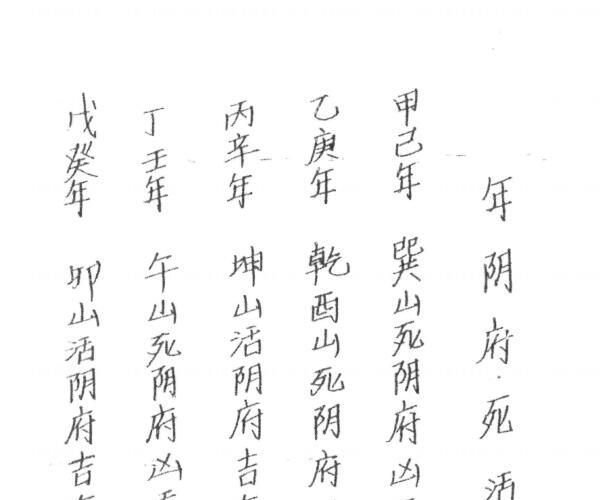 年阴府·死活
甲己年 巽山死阴府凶
乙庚年 乾酉山死阴府
丙辛年 坤山活阴府吉
丁壬年 午山死阴府凶
戊癸年 卯山活阴府吉